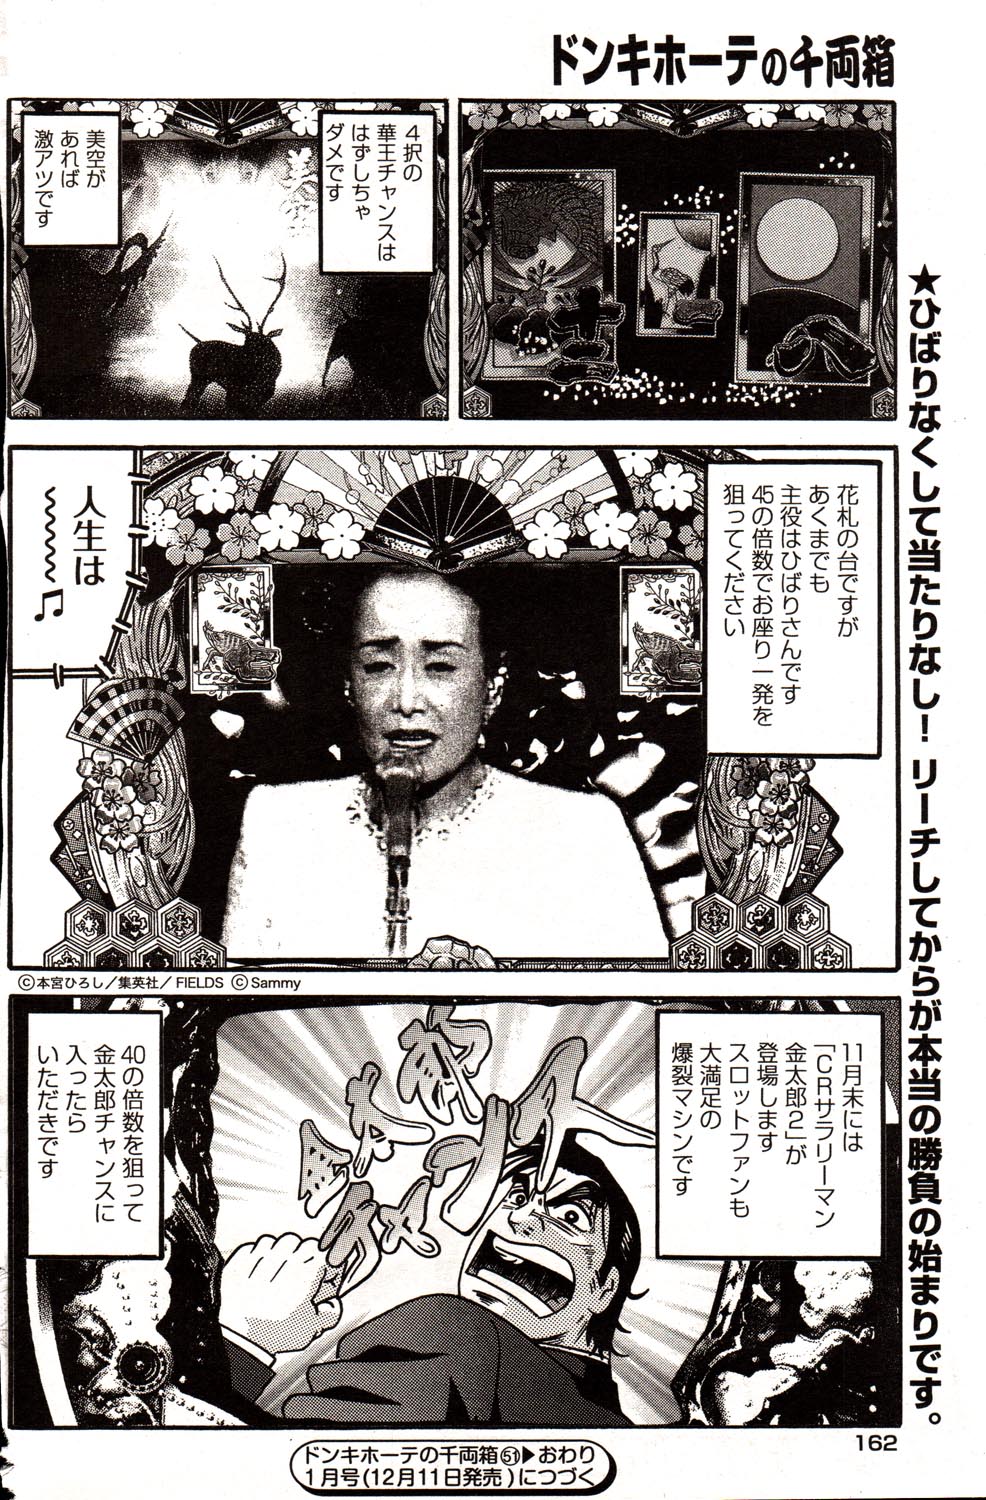 ドンキホーテの千両箱
★ひばりなくして当たりなし！ リーチしてからが本当の勝負の始まりです。
4択の
華王チャンスは
はずしちゃ
ダメです
美空が
あれば
激アツです
花札の台ですが
あくまでも
主役はひばりさんです
45の倍数でお座り一発を
狙ってください
人生は
〜〜〜♫
©本宮ひろし／集英社／FIELDS ©Sammy
11月末には
「CRサラリーマン
金太郎2」が
登場します
スロットファンも
大満足の
爆裂マシンです
金太郎
チャンス
40の倍数を狙って
金太郎チャンスに
入ったら
いただきです
162
ドンキホーテの千両箱51▶おわり
1月号(12月11日発売)につづく